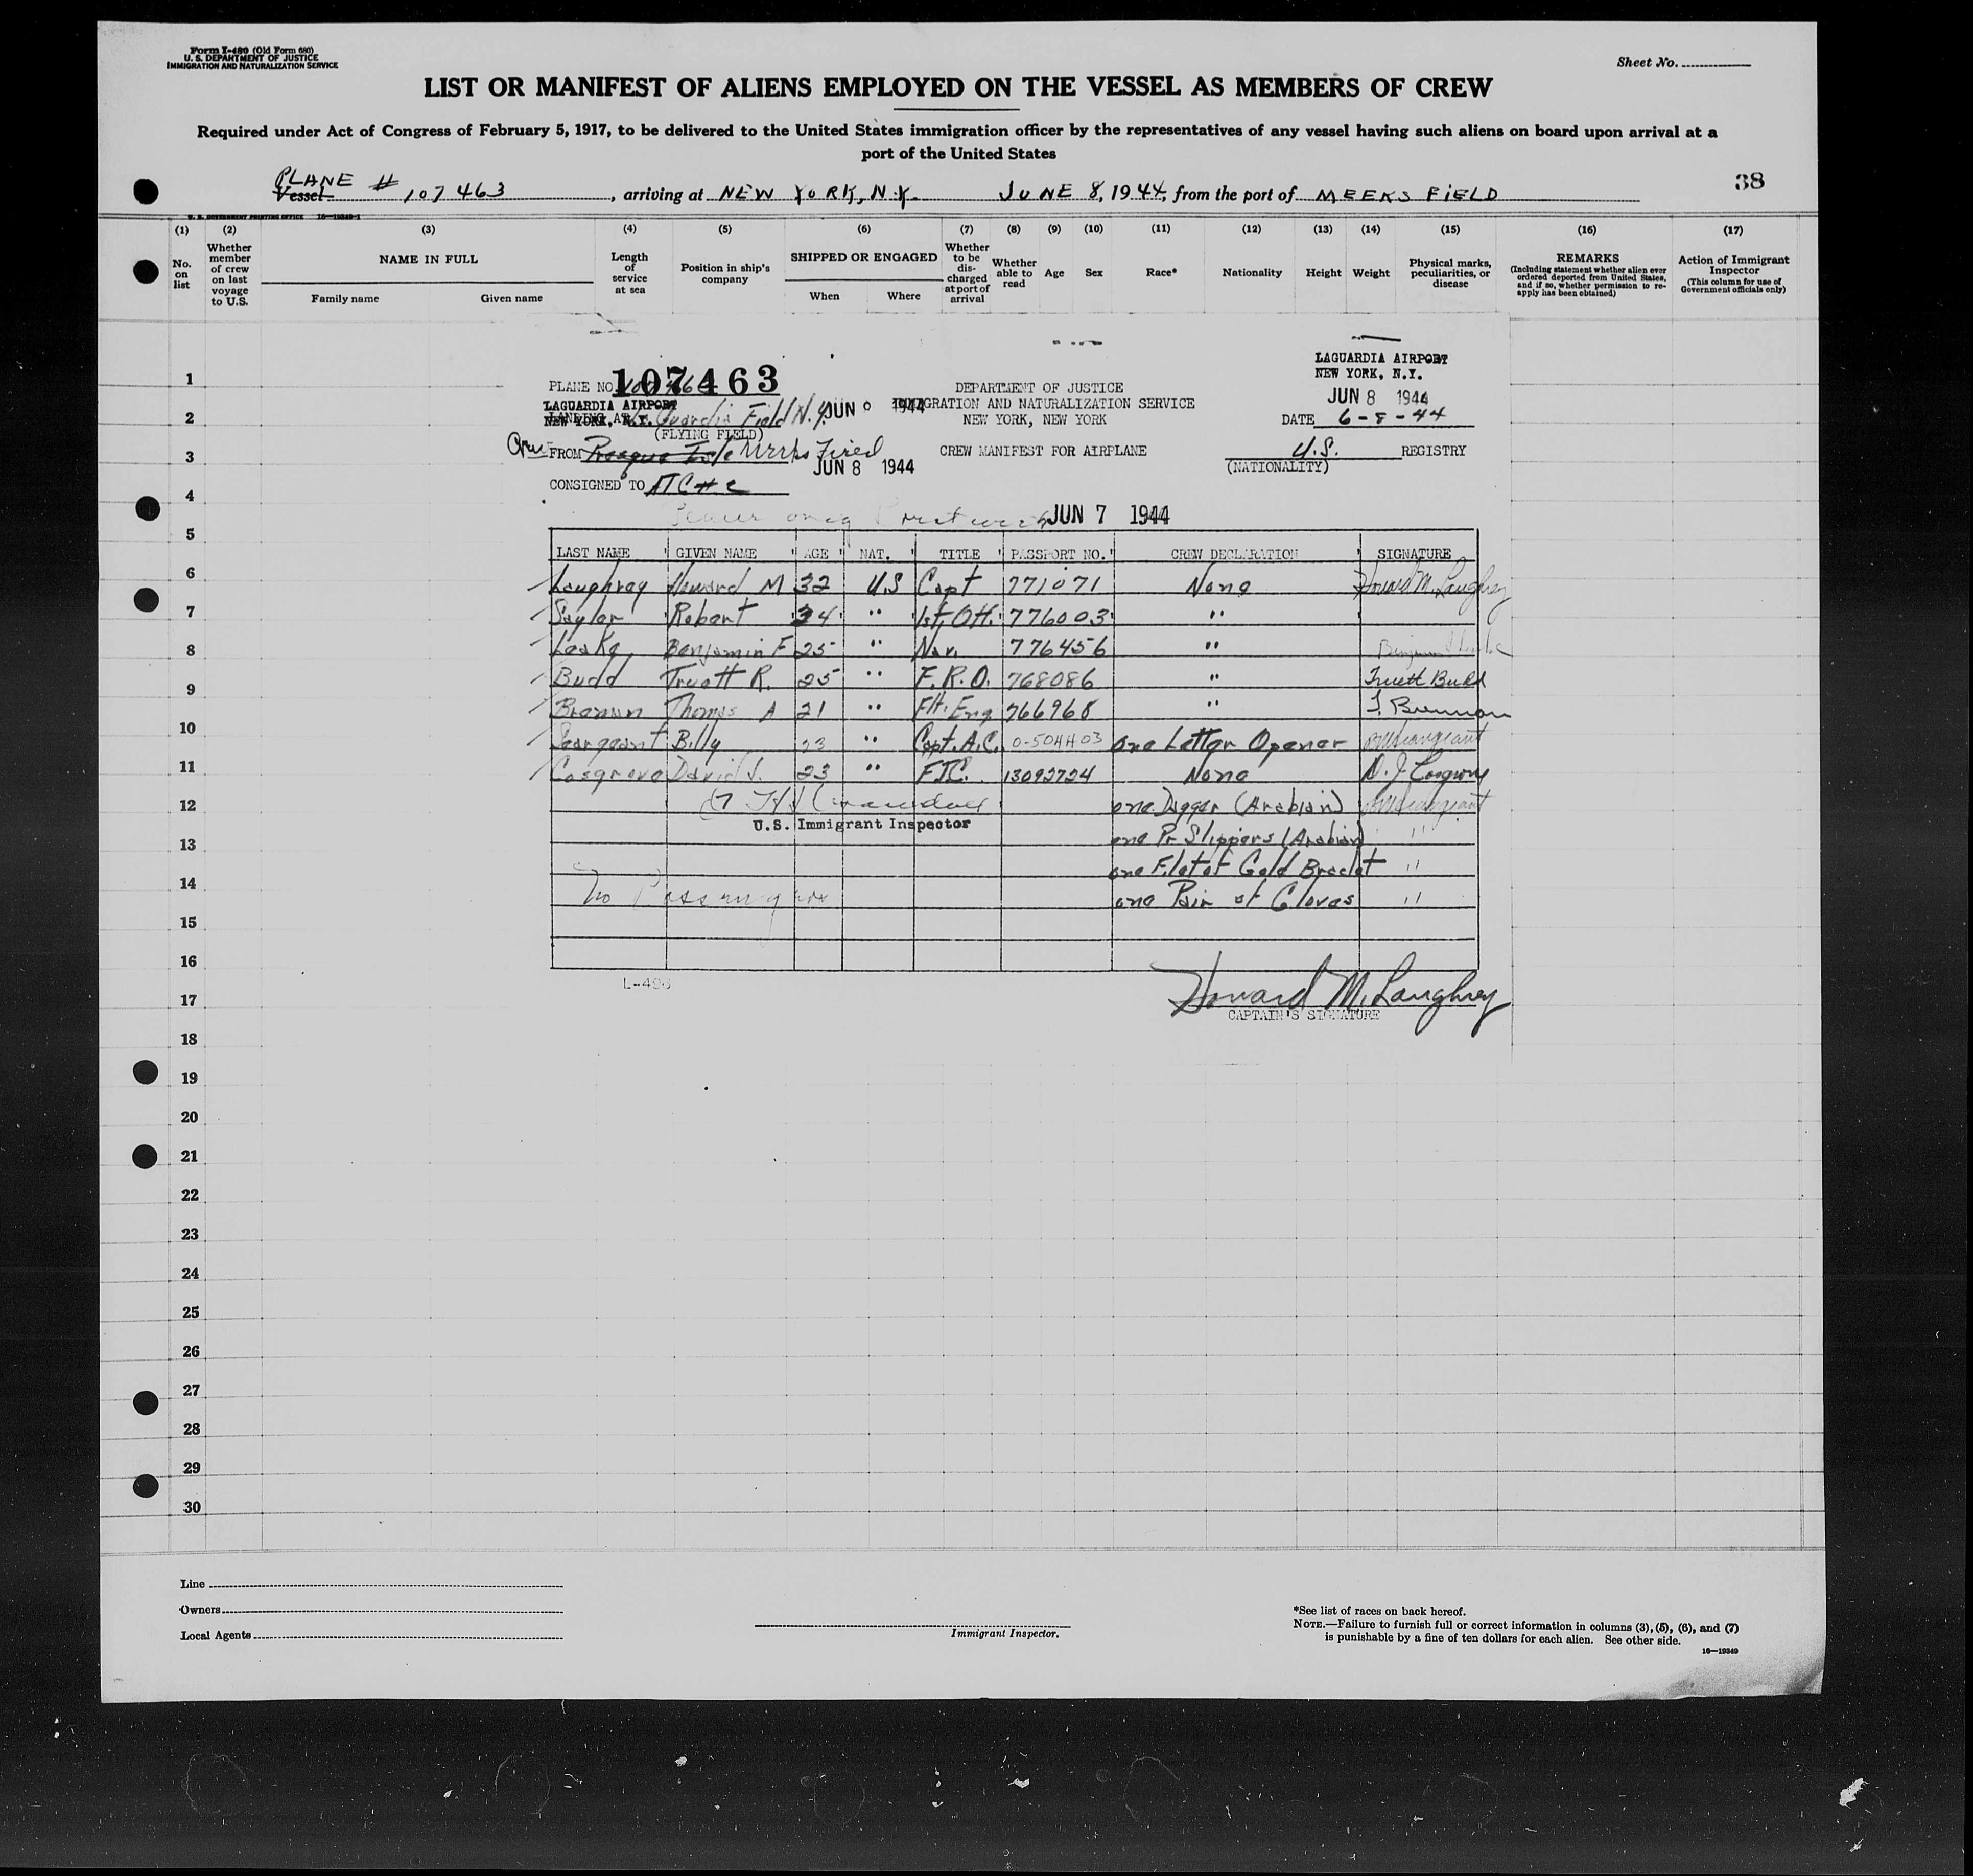 Form I-480 (Old Form 680)
U. S. DEPARTMENT OF JUSTICE
IMMIGRATION AND NATURALIZATION SERVICE
Sheet No.
LIST OR MANIFEST OF ALIENS EMPLOYED ON THE VESSEL AS MEMBERS OF CREW
Required under Act of Congress of February 5, 1917, to be delivered to the United States immigration officer by the representatives of any vessel having such aliens on board upon arrival at a
port of the United States
38
PLANE #
Vessel 107463, arriving at NEW YORK, N.Y. JUNE 8, 1944, from the port of MEEKS FIELD
U. S. GOVERNMENT PRINTING OFFICE 16-19349-1
(1) (2) (3) (4) (5) (6) (7) (8) (9) (10) (11) (12) (13) (14) (15) (16) (17)
No. on list
Whether member of crew on last voyage to U.S.
NAME IN FULL
Family name Given name
Length of service at sea
Position in ship's company
SHIPPED OR ENGAGED
When Where
Whether to be discharged at port of arrival
Whether able to read
Age
Sex
Race*
Nationality
Height
Weight
Physical marks, peculiarities, or disease
REMARKS
(Including statement whether alien ever ordered deported from United States, and if so, whether permission to reapply has been obtained)
Action of Immigrant Inspector
(This column for use of Government officials only)
LAGUARDIA AIRPORT
NEW YORK, N.Y.
JUN 8 1944
PLANE NO. 107463
DEPARTMENT OF JUSTICE
IMMIGRATION AND NATURALIZATION SERVICE
NEW YORK, NEW YORK
DATE 6-8-44
LAGUARDIA AIRPORT
NEW YORK, N.Y.
LANDING AT La Guardia Field N.Y. JUN 1944
(FLYING FIELD)
FROM Presque Isle Meeks Field
JUN 8 1944
CREW MANIFEST FOR AIRPLANE
U.S. REGISTRY
(NATIONALITY)
CONSIGNED TO
JUN 7 1944
LAST NAME GIVEN NAME AGE NAT. TITLE PASSPORT NO. CREW DECLARATION SIGNATURE
Laughrey Howard M 32 U.S Capt 771071 None Howard M. Laughrey
Saylor Robert 34 " 1st. Off. 776003 "
Leake Benjamin F 25 " Nav. 776456 "
Budd Truett R. 25 " F.R.O. 768086 " Truett Budd
Brennan Thomas A 21 " Flt. Eng 766968 " T. Brennan
Seargeant Billy 23 " Capt. A.C. 0-504403 one Letter Opener
Cosgrove David J. 23 " FTC. 13092724 None D. J. Cosgrove
one Dagger (Arabian)
U.S. Immigrant Inspector
one Pr Slippers (Arabian) "
one Flat of Gold Bracelet "
No Passengers
one Pair of Gloves "
L-493
Howard M. Laughrey
CAPTAIN'S SIGNATURE
1
2
3
4
5
6
7
8
9
10
11
12
13
14
15
16
17
18
19
20
21
22
23
24
25
26
27
28
29
30
Line
Owners
Local Agents
Immigrant Inspector.
*See list of races on back hereof.
NOTE.—Failure to furnish full or correct information in columns (3), (5), (6), and (7)
is punishable by a fine of ten dollars for each alien. See other side.
16—19349